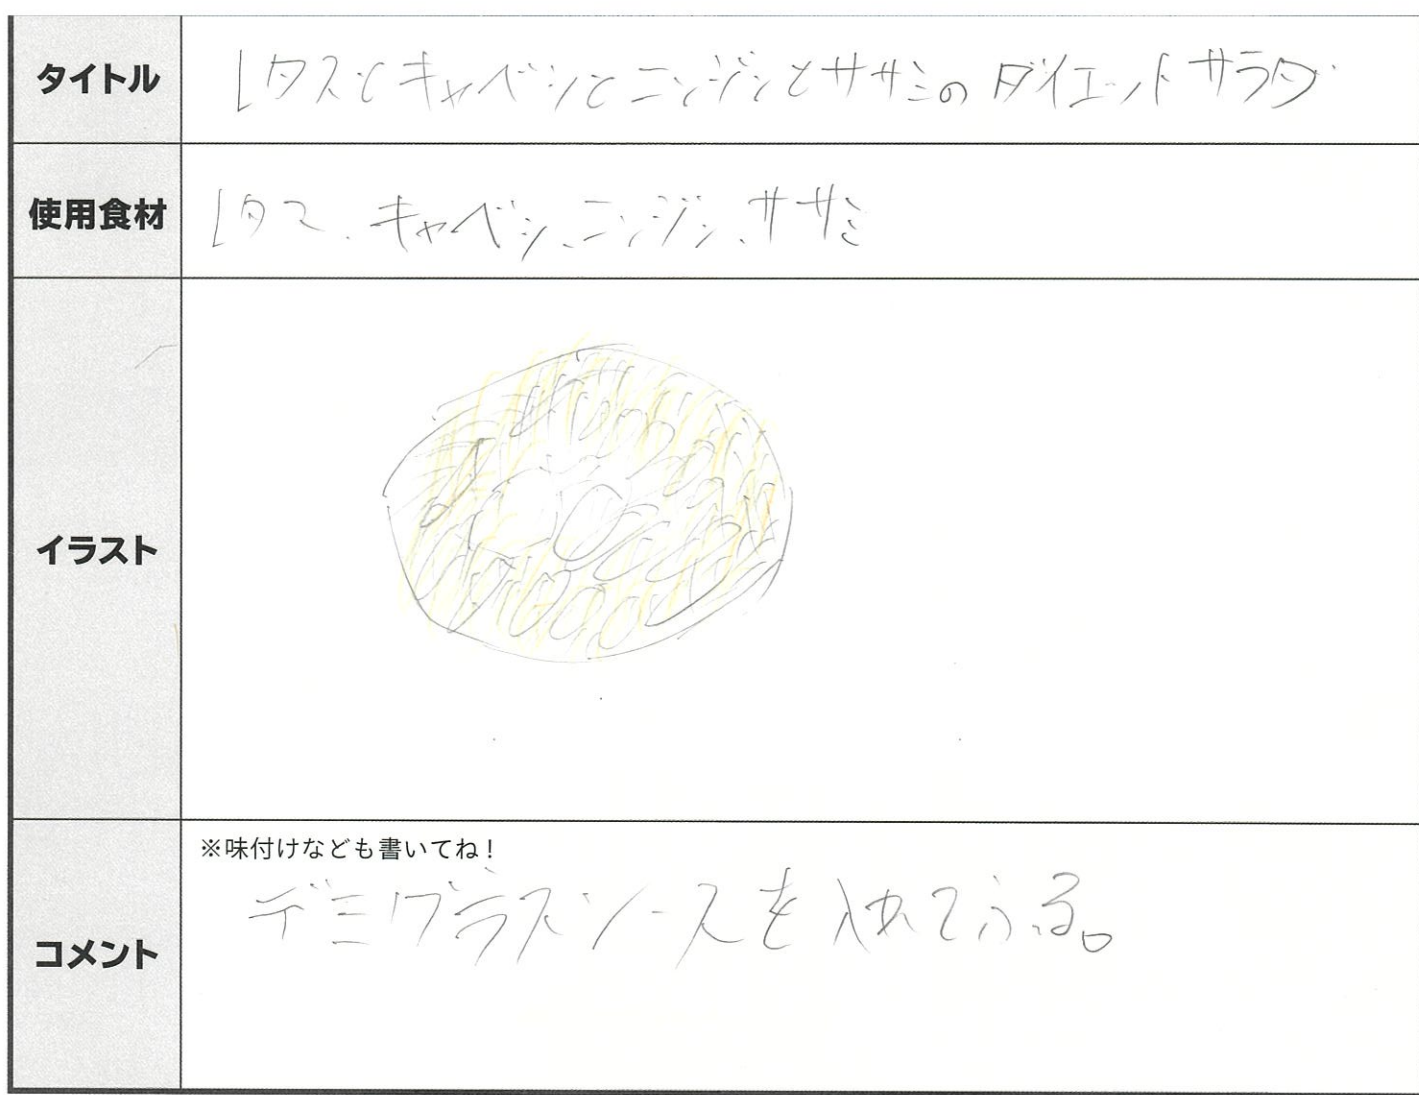 タイトル
レタスとキャベツとニンジンとササミのダイエットサラダ
使用食材
レタス、キャベツ、ニンジン、ササミ
イラスト
コメント
※味付けなども書いてね！
デミグラスソースを入れてふる。